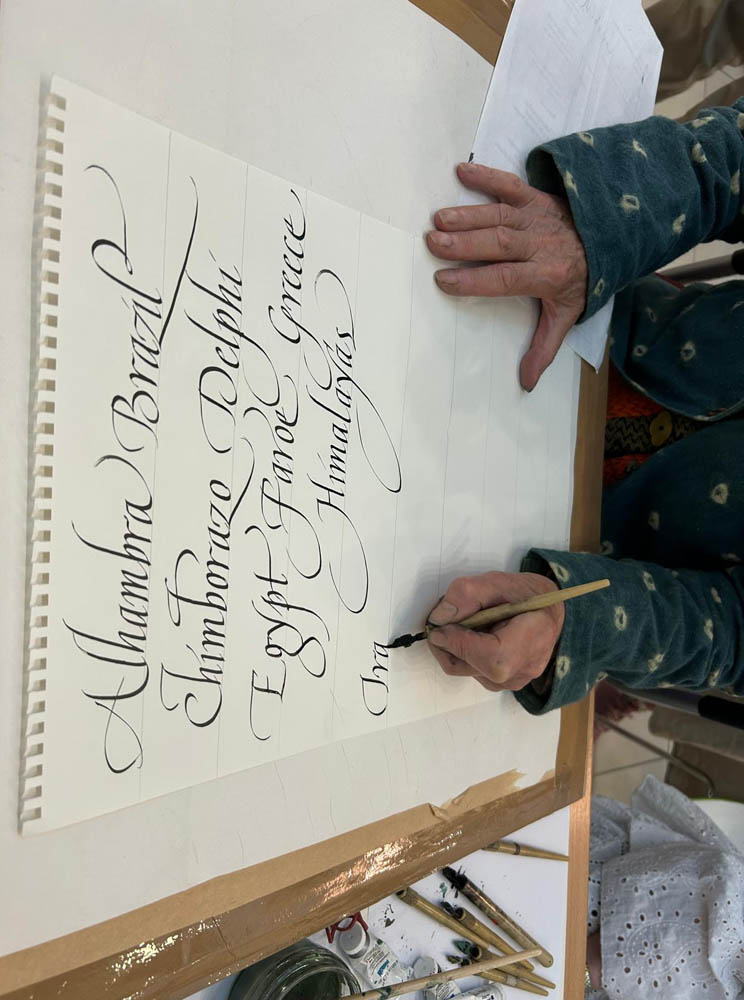 Alhambra Brazil
Chimborazo Delphi
Egypt Faroe Greece
Himalayas
Ira